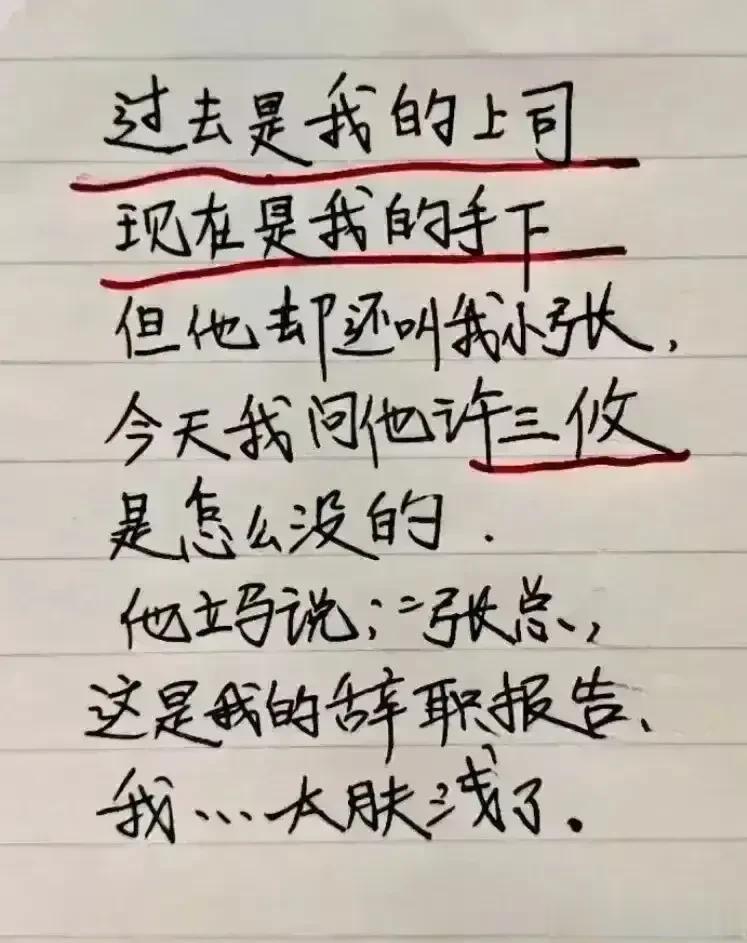 过去是我的上司
现在是我的手下
但他却还叫我小张,
今天我问他许三攸
是怎么没的.
他立马说;"张总,
这是我的辞职报告、
我...太肤浅了.